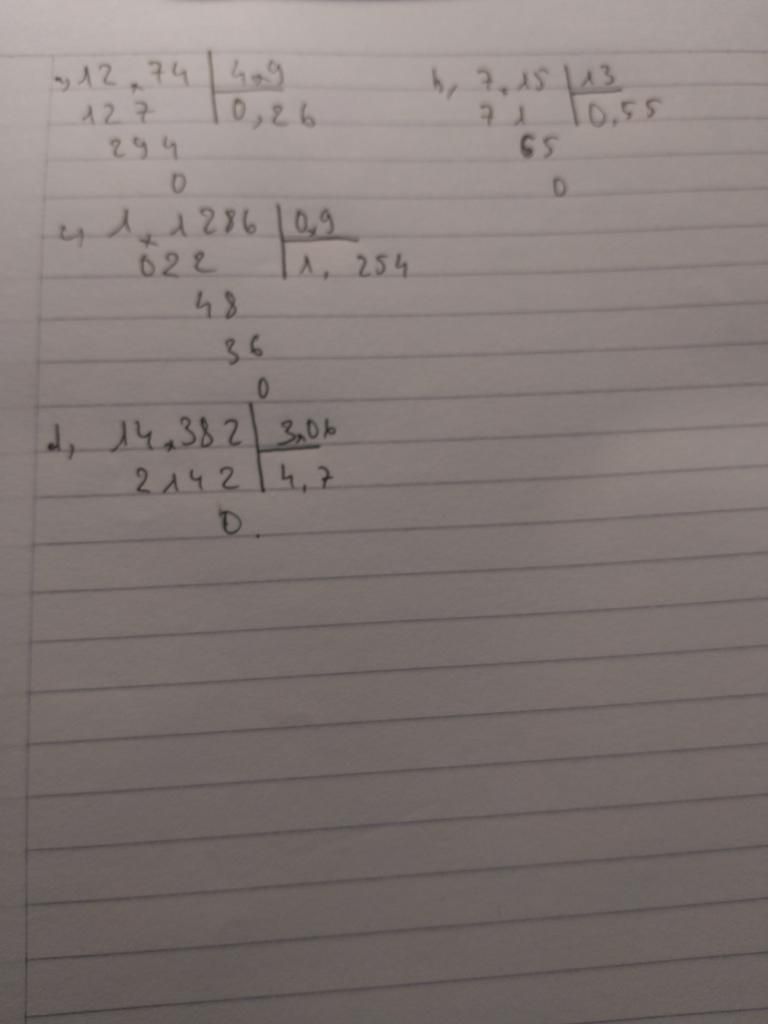 a, 12,74 | 4,9
127 | 0,26
294
0
b, 7,15 | 13
71 | 0,55
65
0
c, 1,1286 | 0,9
022 | 1,254
48
36
0
d, 14,382 | 3,06
2142 | 4,7
0.